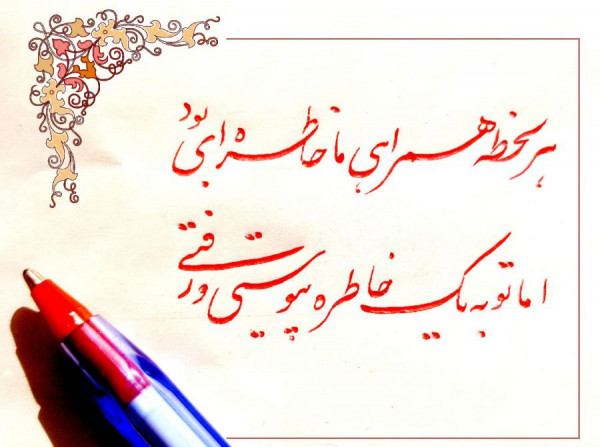 هر لحظه همراهی ما خاطره ای بود
اما تو به یک خاطره پیوستی و رفتی